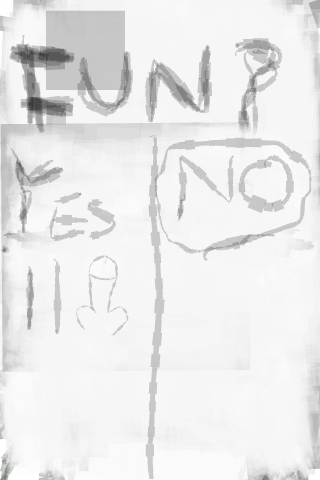 FUN?
YES NO
||